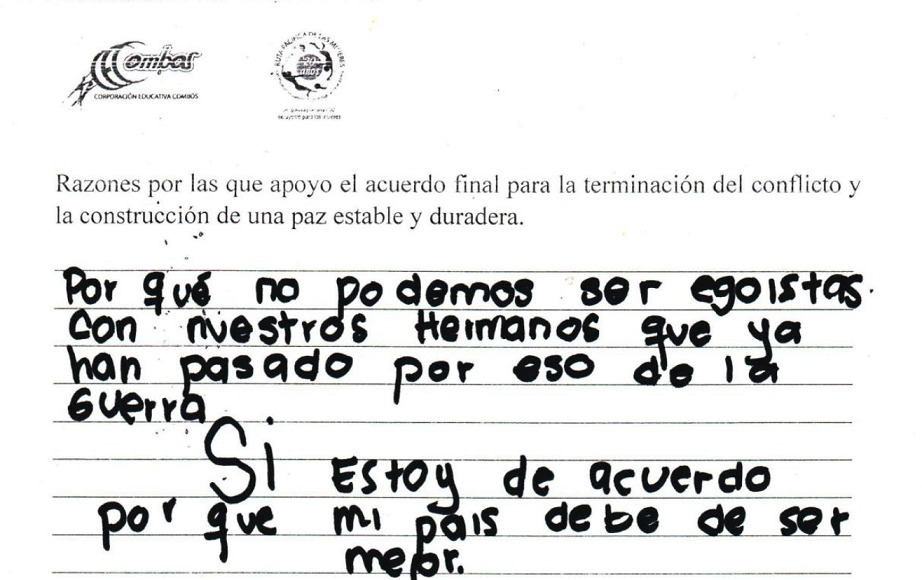 Combos
CORPORACIÓN EDUCATIVA COMBOS
RUTA PACÍFICA DE LAS MUJERES
Razones por las que apoyo el acuerdo final para la terminación del conflicto y
la construcción de una paz estable y duradera.
Por qué no podemos ser egoistas.
Con nuestros Heimanos que ya
han pasado por eso de la
Guerra
Si Estoy de acuerdo
por que mi pais debe de ser
mejor.